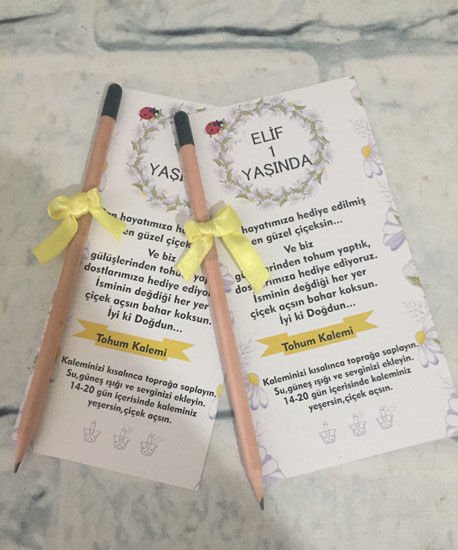 hayatımıza hediye
en güzel
Ve biz
gülüşlerinden tohum
dostlarımıza hediye
İsminin değdiği her yer
çiçek açsın bahar koksun.
İyi ki Doğdun...
Tohum Kalemi
Kaleminizi kısalınca toprağa saplayın.
Su,güneş ışığı ve sevginizi ekleyin.
14-20 gün içerisinde kaleminiz
yeşersin,çiçek açsın.
ELİF
1
YAŞINDA
hayatımıza hediye edilmiş
en güzel çiçeksin...
Ve biz
gülüşlerinden tohum yaptık,
dostlarımıza hediye ediyoruz.
İsminin değdiği her yer
çiçek açsın bahar koksun.
İyi ki Doğdun...
Tohum Kalemi
Kaleminizi kısalınca toprağa saplayın.
Su,güneş ışığı ve sevginizi ekleyin.
14-20 gün içerisinde kaleminiz
yeşersin,çiçek açsın.